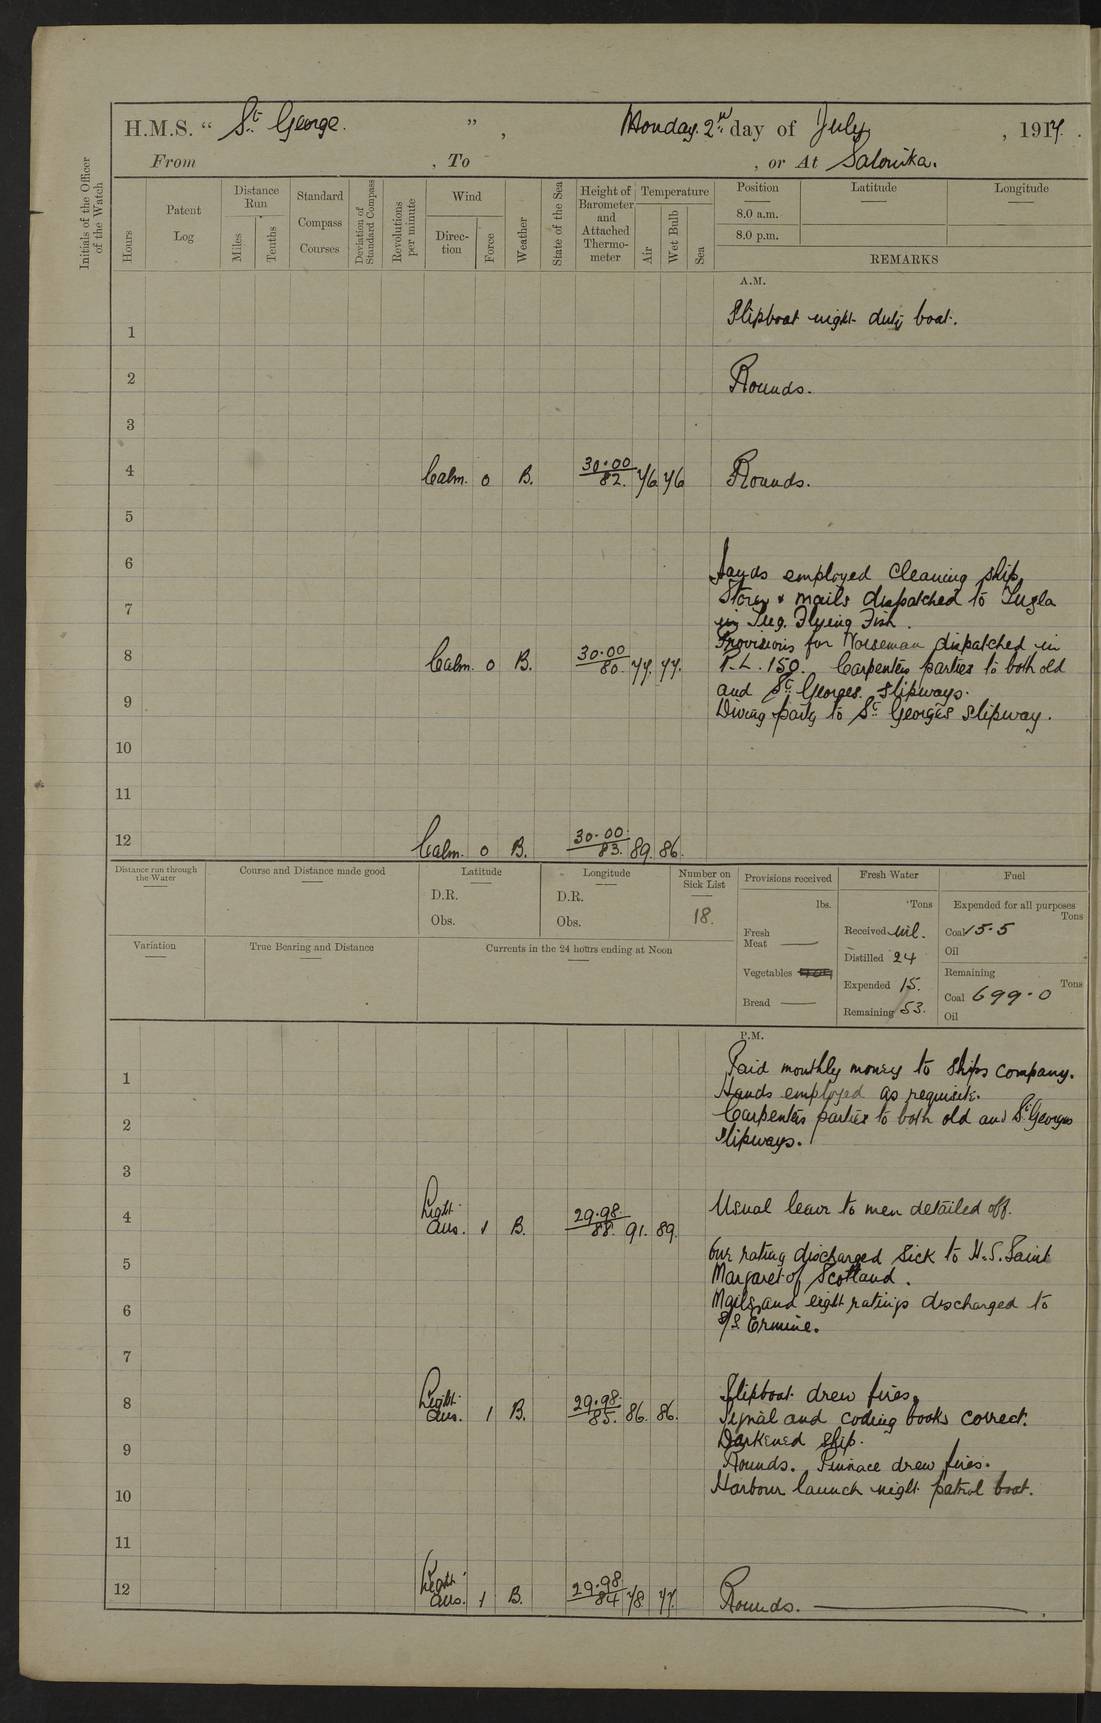 H.M.S. “ St George. ” , Monday. 2nd day of July , 1917.
From , To , or At Salonika.
Initials of the Officer of the Watch
Hours
Patent Log
Distance Run
Miles
Tenths
Standard Compass Courses
Deviation of Standard Compass
Revolutions per minute
Wind
Direction
Force
Weather
State of the Sea
Height of Barometer and Attached Thermometer
Temperature
Air
Wet Bulb
Sea
Position
Latitude
Longitude
8.0 a.m.
8.0 p.m.
REMARKS
A.M.
1 Slipboat night duty boat.
2 Rounds.
3
4 Calm. 0 B. 30.00 82. 76 76 Rounds.
5
6 Hands employed cleaning ship,
Stores & mails dispatched to Tuzla
7 in Tug. Flying Fish.
Provisions for Norseman dispatched in
8 Calm. 0 B. 30.00 80. 77. 77. P.L. 150. Carpenters parties to both old
and St Georges slipways.
9 Diving party to St Georges slipway.
10
11
12 Calm. 0 B. 30.00 83. 89. 86.
Distance run through the Water
Course and Distance made good
Latitude
D.R.
Obs.
Longitude
D.R.
Obs.
Number on Sick List
18.
Provisions received
lbs.
Fresh Meat —
Vegetables
Bread —
Fresh Water
Tons
Received nil.
Distilled 24
Expended 15.
Remaining 153.
Fuel
Expended for all purposes
Tons
Coal 15.5
Oil
Remaining
Tons
Coal 699.0
Oil
Variation
True Bearing and Distance
Currents in the 24 hours ending at Noon
P.M.
1 Paid monthly money to ships company.
Hands employed as requisite.
2 Carpenters parties to both old and St Georges
slipways.
3
4 Light Aus. 1 B. 29.98 88. 91. 89. Usual leave to men detailed off.
5 One rating discharged sick to H.S. Saint
Margaret of Scotland.
6 Mails, and eight ratings discharged to
S/S Ermine.
7
8 Light Aus. 1 B. 29.98 85. 86. 86. Slipboat drew fires.
Signal and coding books correct.
9 Darkened ship.
Rounds. Pinnace drew fires.
10 Harbour launch night patrol boat.
11
12 Light Aus. 1 B. 29.98 84 78 77. Rounds.